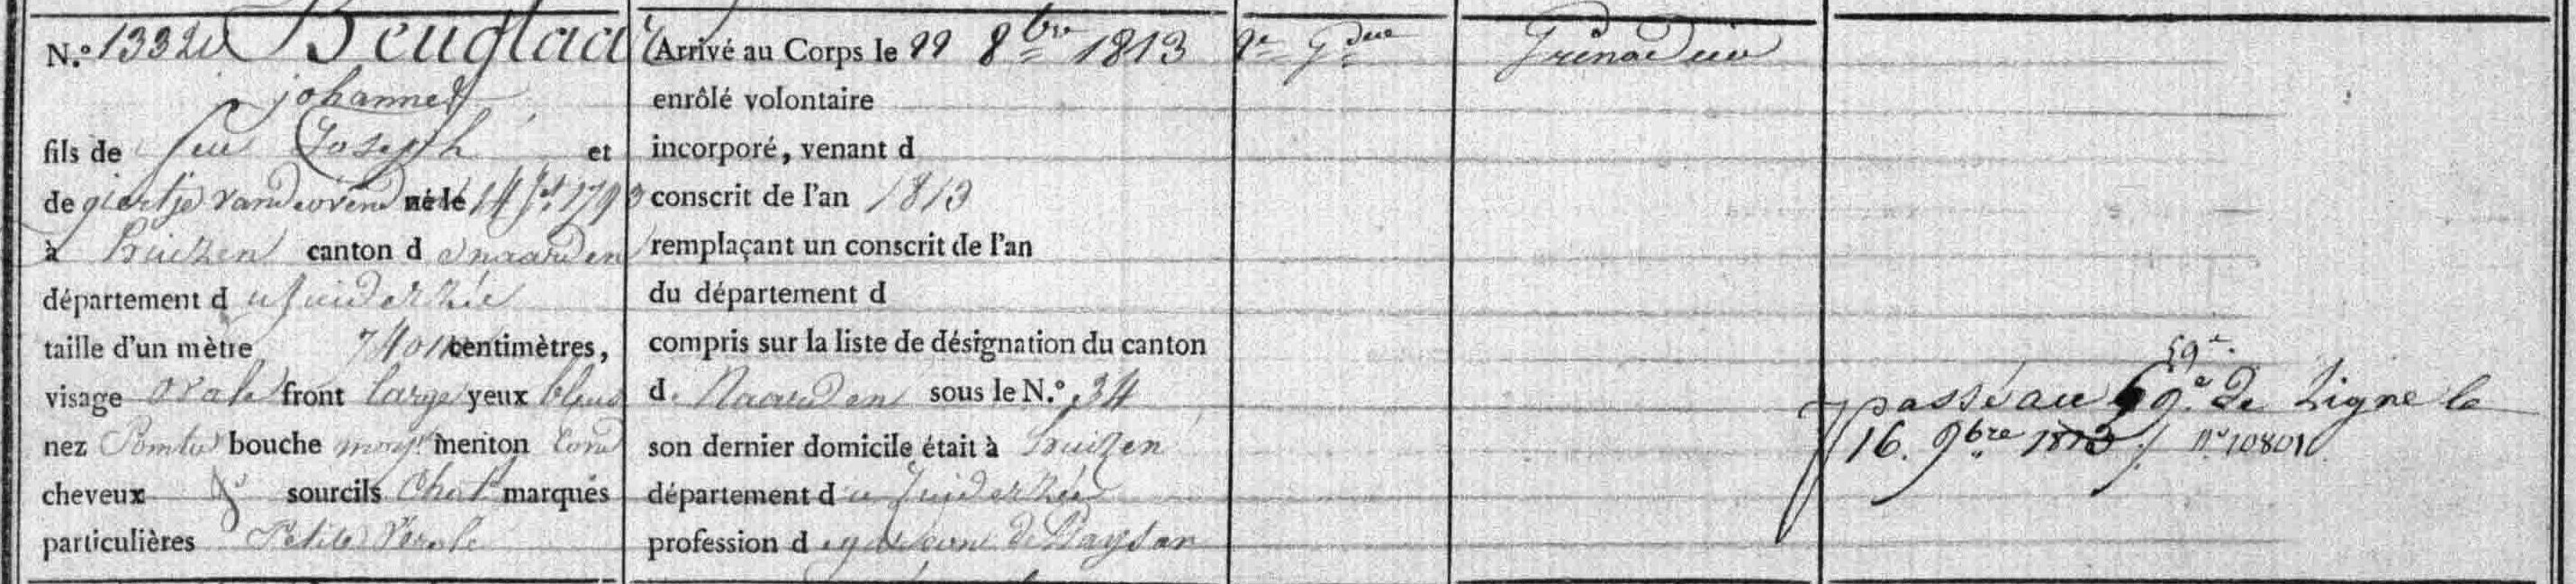 N.º 13321 Beuglaar
johannes
fils de feu Joseph et
de giertje vande né le 14 1793
à huizen canton de naarden
département du Zuiderzée
taille d'un mètre 740 centimètres,
visage ovale front large yeux bleus
nez Pointu bouche moy. menton rond
cheveux sourcils Chat. marques
particulières Petite Verole
Arrivé au Corps le 22 8bre 1813
enrôlé volontaire
incorporé, venant d
conscrit de l'an 1813
remplaçant un conscrit de l'an
du département d
compris sur la liste de désignation du canton
d. Naarden sous le N.º 34
son dernier domicile était à huizen
département du Zuiderzée
profession de garcon de Paysan
Grenadier
59e.
passé au 59e. de Ligne le
16. 9bre 1813 ./. nº 10801